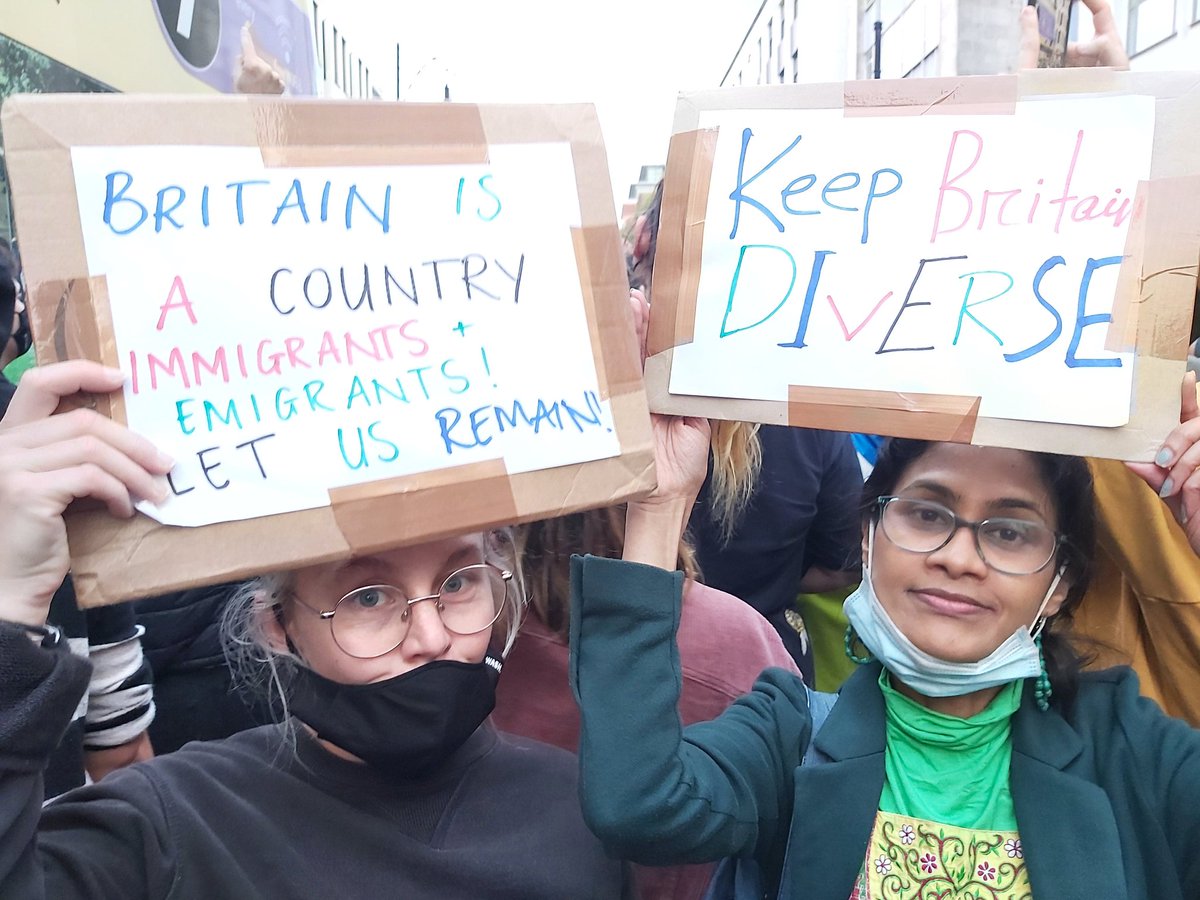 BRITAIN IS
A COUNTRY
IMMIGRANTS +
EMIGRANTS!
LET US REMAIN!
Keep Britain
DIVERSE
WASH